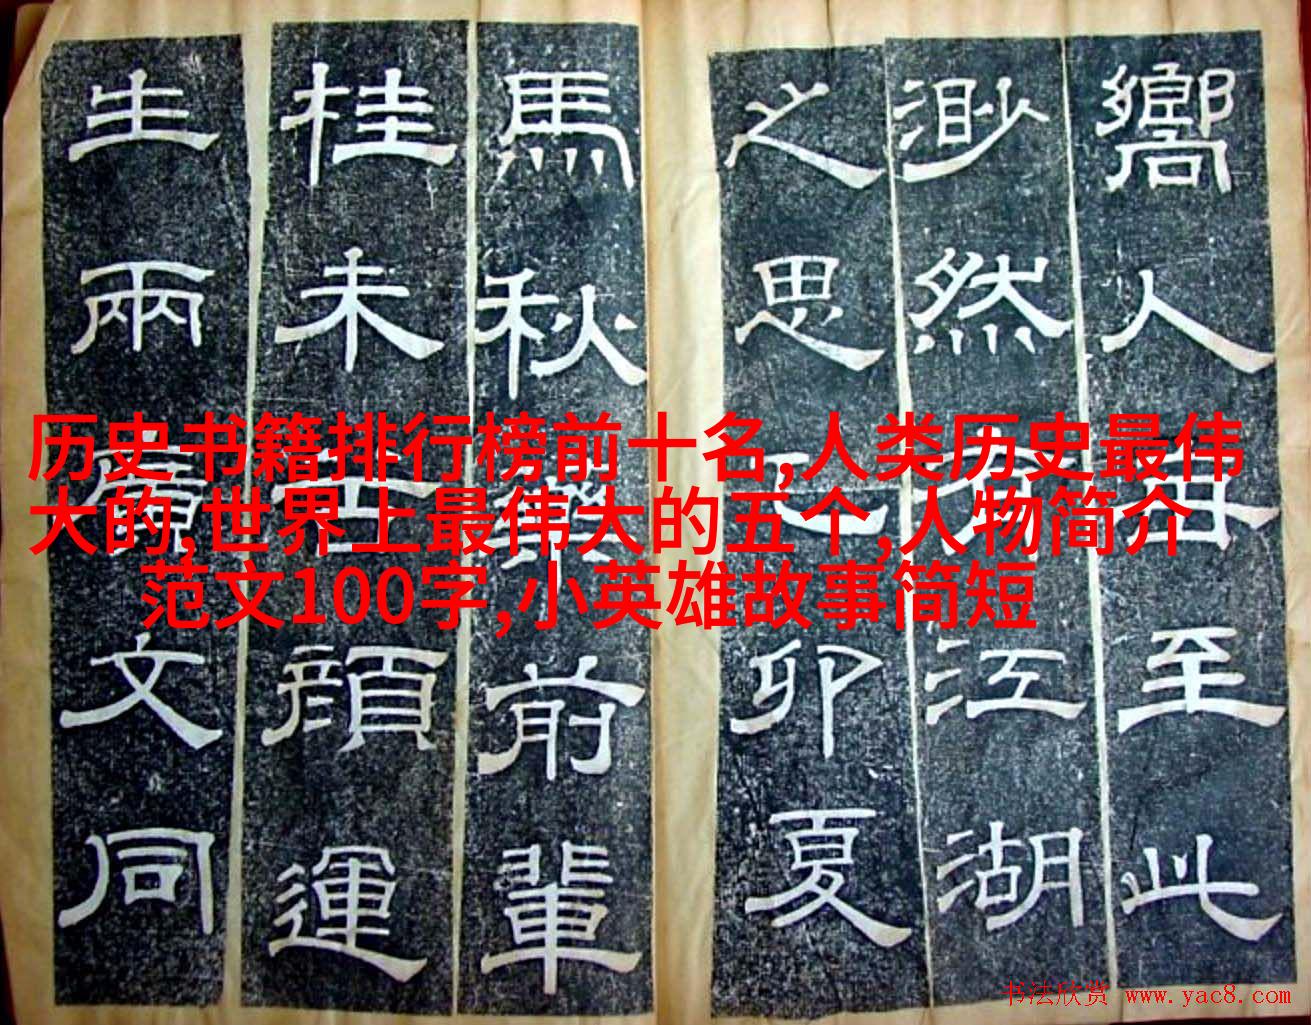 嚮人至此
渺然有江湖
之思乙卯夏
馬秋藥前輩
桂未谷顏運
生兩廣文同
历史书籍排行榜前十名,人类历史最伟
大的,世界上最伟大的五个,人物简介
范文100字,小英雄故事简短
书法欣赏 www.yac8.com